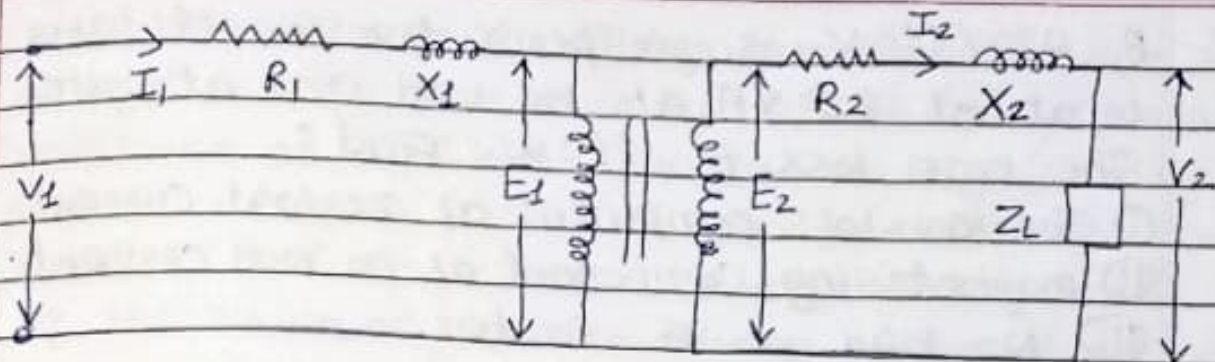 I2
I1 R1 X1 R2 X2
V1 E1 E2 ZL V2